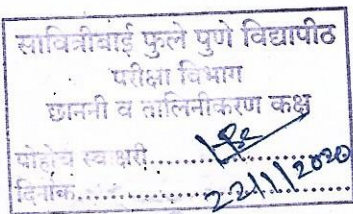 सावित्रीबाई फुले पुणे विद्यापीठ
परीक्षा विभाग
छाननी व तालिनीकरण कक्ष
पोहोच स्वाक्षरी..........
दिनांक.......... 22/1/2020